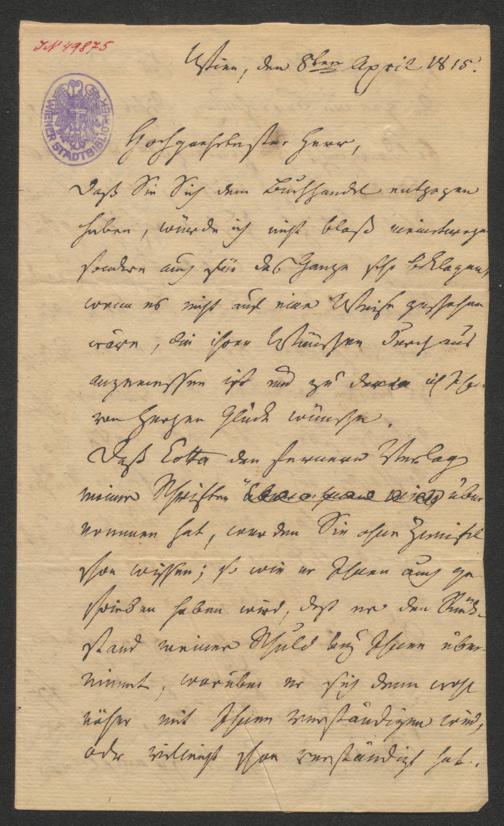 IN 49875
WIENER STADTBIBLIOTHEK
Wien, den 8ten April 1815.
Hochgeehrtester Herr,
Daß Sie Sich dem Buchhandel entzogen
haben, würde ich nicht bloß meinetwegen
sondern auch für das Ganze sehr beklagen,
wenn es nicht auf eine Weise geschehen
wäre, die ihren Wünschen durchaus
angemessen ist und zu der ich Ihnen
von Herzen Glück wünsche.
Daß Cotta den fernern Verlag
meiner Schriften über-
nommen hat, werden Sie ohne Zweifel
schon wissen; so wie er Ihnen auch ge-
schrieben haben wird, daß er den Rück-
stand meiner Schuld bey Ihnen über-
nimmt, worüber er sich denn wohl
näher mit Ihnen verständigen wird,
oder vielleicht schon verständigt hat.